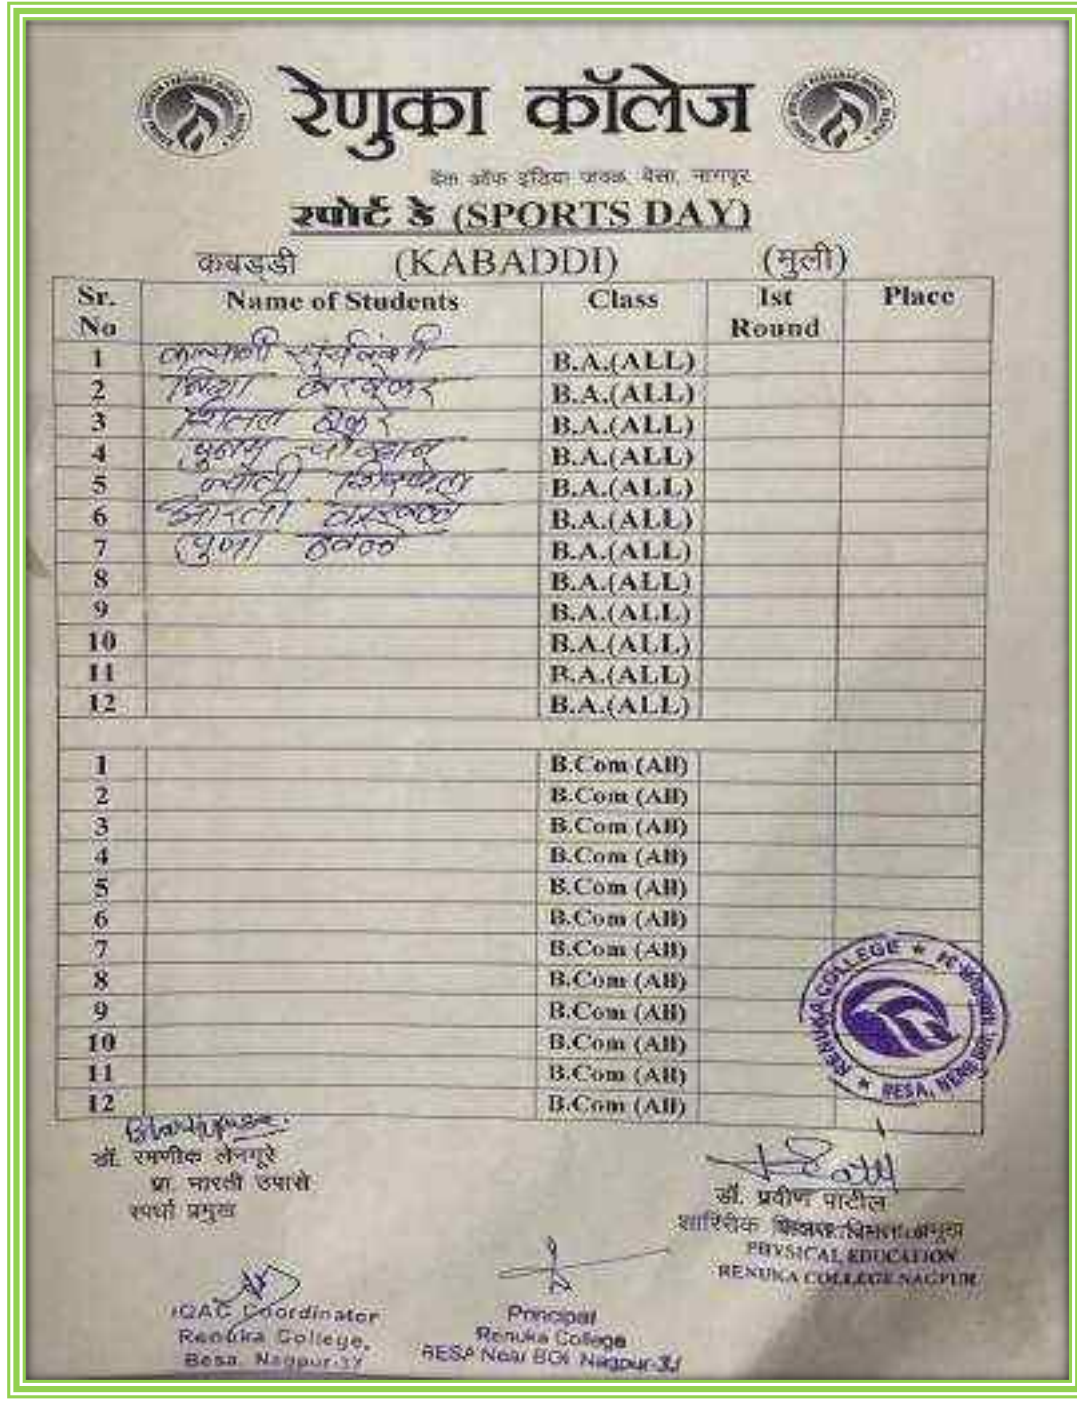 रेणुका कॉलेज
बँक ऑफ इंडिया जवळ, बेसा, नागपूर
स्पोर्ट डे (SPORTS DAY)
कबड्डी (KABADDI) (मुली)
Sr. No Name of Students Class 1st Round Place
1 कल्याणी सुर्यवंशी B.A.(ALL)
2 B.A.(ALL)
3 शितल ठाकरे B.A.(ALL)
4 पुनम चौव्हान B.A.(ALL)
5 ज्योती B.A.(ALL)
6 आरती B.A.(ALL)
7 पुजा B.A.(ALL)
8 B.A.(ALL)
9 B.A.(ALL)
10 B.A.(ALL)
11 B.A.(ALL)
12 B.A.(ALL)
1 B.Com (All)
2 B.Com (All)
3 B.Com (All)
4 B.Com (All)
5 B.Com (All)
6 B.Com (All)
7 B.Com (All)
8 B.Com (All)
9 B.Com (All)
10 B.Com (All)
11 B.Com (All)
12 B.Com (All)
RENUKA COLLEGE
BESA,
डॉ. रमणीक लेनगूरे
प्रा. भारती उपासे
स्पर्धा प्रमुख
डॉ. प्रवीण पाटील
शारिरीक शिक्षण विभाग प्रमुख
PHYSICAL EDUCATION
RENUKA COLLEGE NAGPUR
IQAC Coordinator
Renuka College,
Besa, Nagpur-37
Principal
Renuka College
BESA Near BOI, Nagpur-37